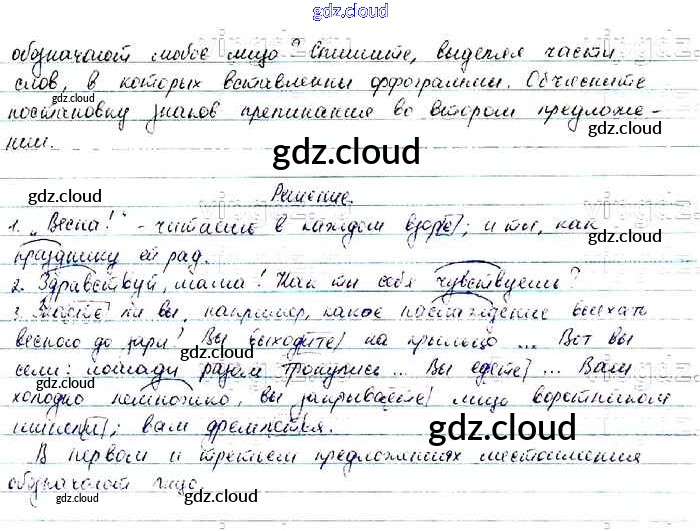 gdz.cloud
обозначают любое лицо? Спишите, выделяя части
слов, в которых вставлены орфограммы. Объясните
gdz.cloud gdz.cloud
постановку знаков препинания во втором предложе-
нии.
gdz.cloud
gdz.cloud
Решение.
1. „Весна!" - читаешь в каждом взоре; и ты, как
празднику ей рад.
2. Здравствуй, мама! Как ты себя чувствуешь?
3. Знаете ли вы, например, какое наслаждение выехать
весной до зари! Вы выходите на крыльцо ... Вот вы
сели: лошади разом тронулись ... Вы едете ... Вам
gdz.cloud gdz.cloud
холодно немножко, вы закрываете лицо воротником
шинели; вам дремлется.
gdz.cloud
В первом и третьем предложениях местоимения
обозначают лицо.
gdz.cloud gdz.cloud